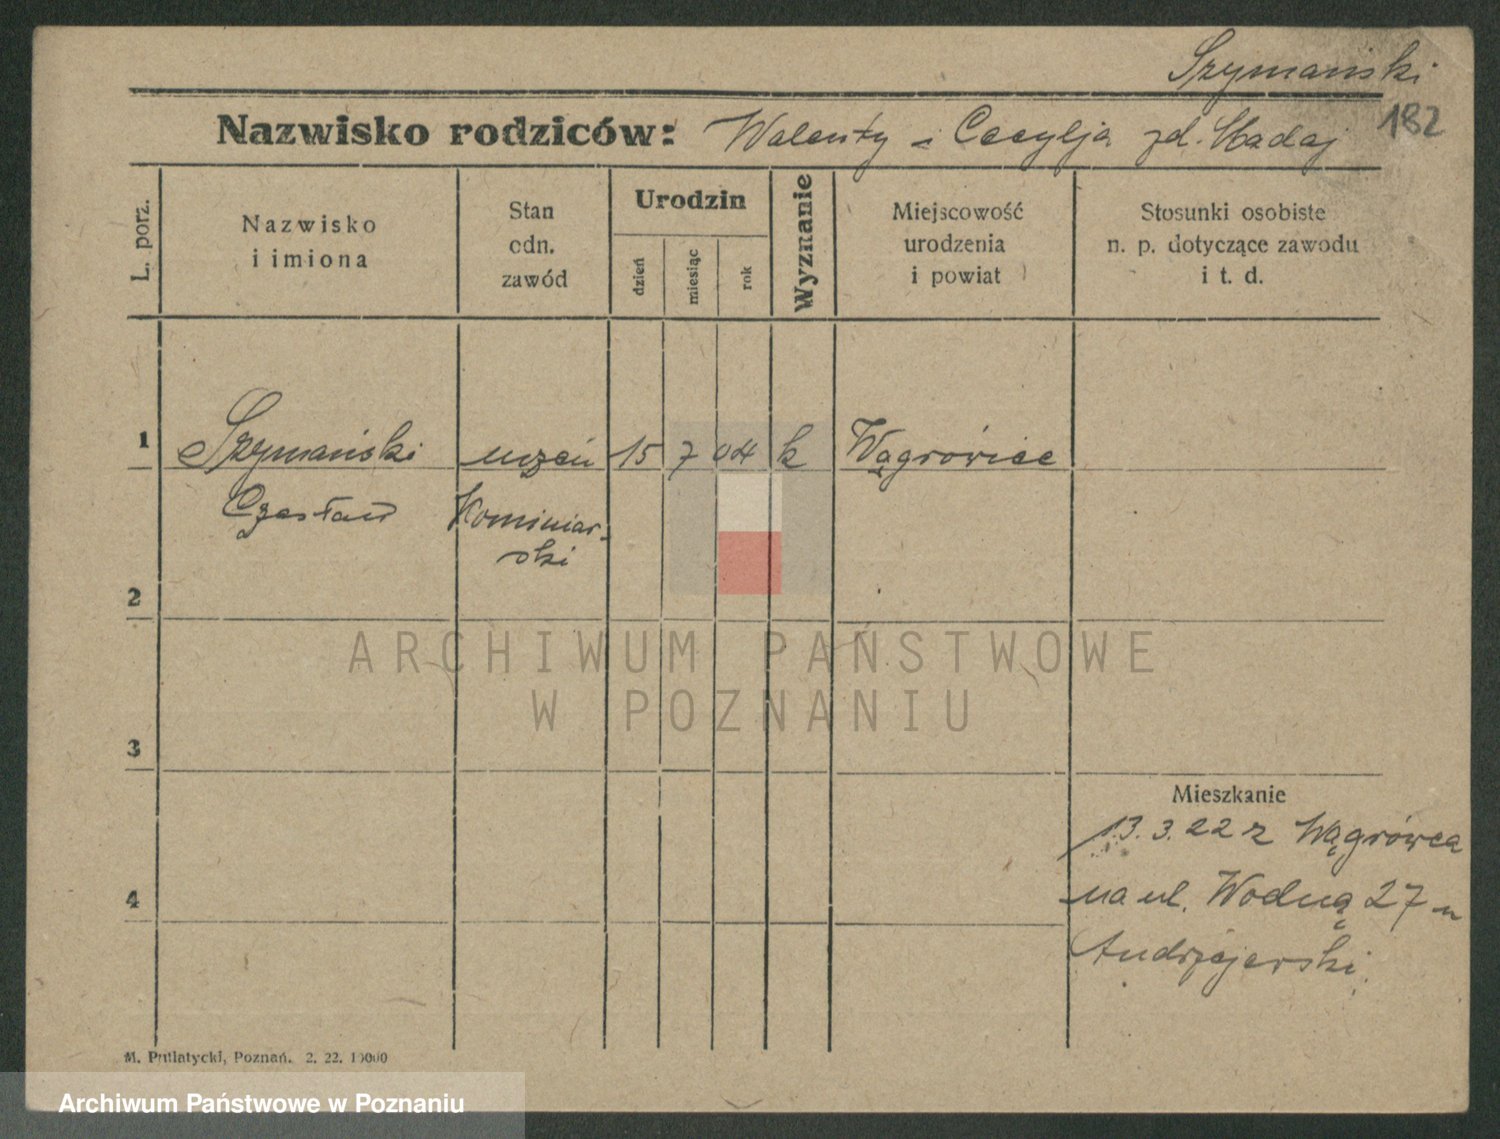 Szymański
182
Nazwisko rodziców: Walenty i Cecylja zd. Hadaj
L. porz.
Nazwisko
i imiona
Stan
odn.
zawód
Urodzin
dzień
miesiąc
rok
Wyznanie
Miejscowość
urodzenia
i powiat
Stosunki osobiste
n. p. dotyczące zawodu
i t. d.
1 Szymański uczeń 15 7 04 k Wągrówiec
Czesław Kominiar-
ski
2
ARCHIWUM PAŃSTWOWE
W POZNANIU
3
Mieszkanie
13.3.22 z Wągrówca
4
na ul. Wodną 27 u
Andrzejerski
M. Putiatycki, Poznań. 2. 22. 10000
Archiwum Państwowe w Poznaniu